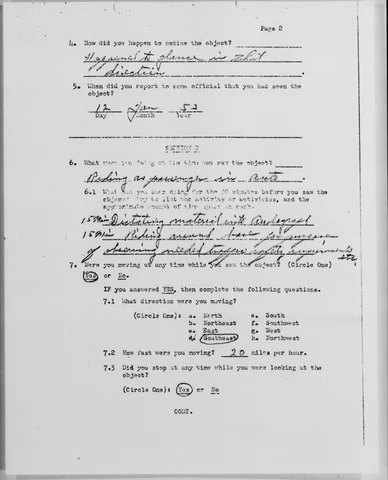 Page 2
4. How did you happen to notice the object?
Happened to glance in that
direction
5. When did you report to some official that you had seen the
object?
12 Jan 53
Day Month Year
SECTION B
6. What were you doing at the time you saw the object?
Riding as passenger in auto
6.1 What were you doing for the 30 minutes before you saw the
object? Try to list the activity or activities, and the
approximate amount of time spent on each.
15 Min Dictating material with
15 Min Riding around base for purpose
of observing needed safety improvements
etc
7. Were you moving at any time while you saw the object? (Circle One)
Yes or No.
IF you answered YES, then complete the following questions.
7.1 What direction were you moving?
(Circle One): a. North e. South
b. Northeast f. Southwest
c. East g. West
d. Southeast h. Northwest
7.2 How fast were you moving? 20 miles per hour.
7.3 Did you stop at any time while you were looking at the
object?
(Circle One): Yes or No
CONT.